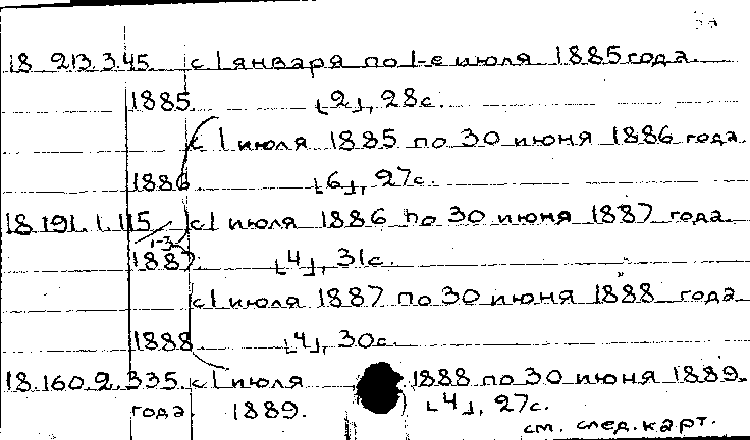 18.213.3.45. с 1 января по 1-е июля 1885 года.
1885. [2], 28с.
с 1 июля 1885 по 30 июня 1886 года
1886. [6], 27с.
18.191.1.115/1-3 с 1 июля 1886 по 30 июня 1887 года.
1887. [4], 31с.
с 1 июля 1887 по 30 июня 1888 года
1888. [4], 30с.
18.160.2.335. с 1 июля 1888 по 30 июня 1889.
года 1889. [4], 27с.
см. след. карт.